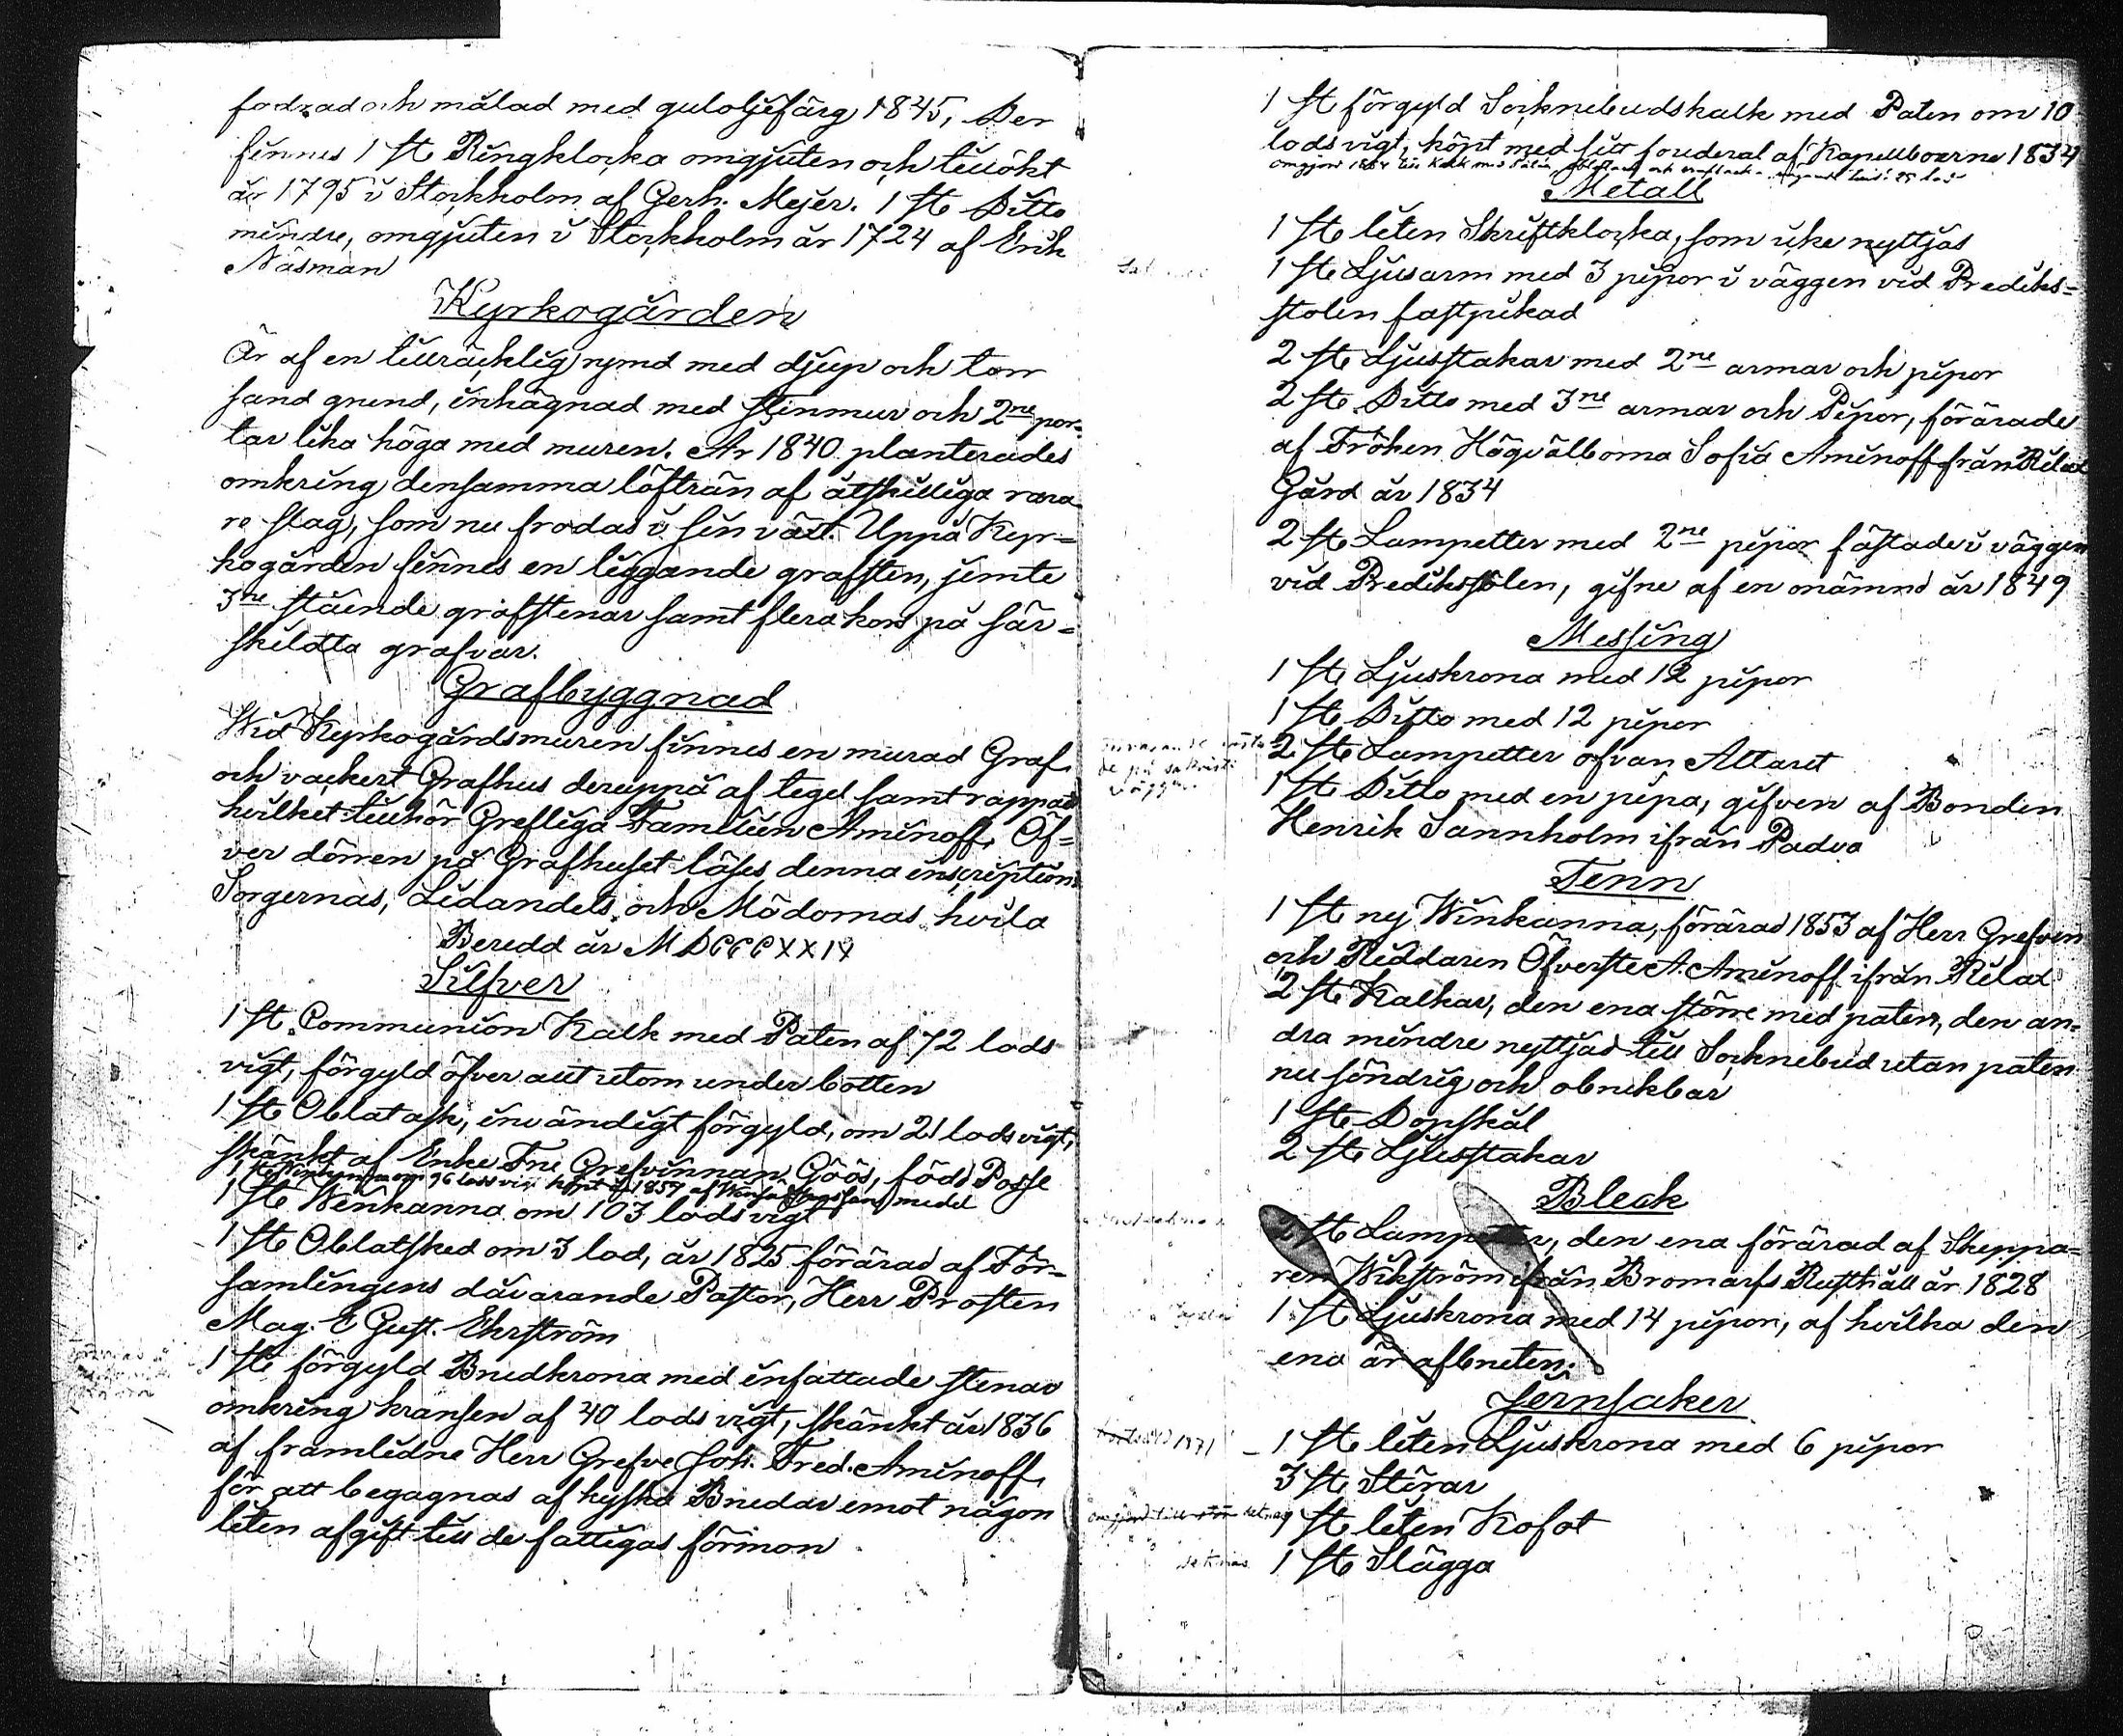 fodrad och målad med guloljefärg 1845, Der
finnes 1 st. Ringklocka omgjuten och tillökt
år 1795 i Stockholm af Gerh. Mejer. 1 st. Ditto
mindre, omgjuten i Stockholm år 1724 af Erik
Näsman
Kyrkogården
Är af en tillräcklig rymd med djup och torr
sand grund, inhägnad med stenmur och 2ne por-
tar lika höga med muren. År 1840 planterades
omkring densamma löfträn af åtskilliga rara
re slag, som nu frodas i sin växt. Uppå Kyr-
kogården finnes en liggande grafsten, jemte
3ne stående grafstenar samt flera kors på sär-
skildta grafvar.
Grafbyggnad
Wid Kyrkogårdsmuren finnes en murad Graf
och vackert Grafhus deruppå af tegel samt rappad
hvilket tillhör Grefliga Familien Aminoff. Öf-
ver dörren på Grafhuset läses denna inscription:
Sorgernas, Lidandets och Mödornas hvila
Beredd år MDCCCXXIX
Silfver
1 st. Communion Kalk med Paten af 72 lods
vigt, förgyld öfver allt utom under botten
1 st. Oblatask, invändigt förgyld, om 21 lods vigt,
skänkt af Enke Fru Grefvinnan Göös, född Posse
1 st. Winkanna om 96 lods vigt köpt år 1857 af medel
1 st. Winkanna om 103 lods vigt
1 st. Oblatsked om 3 lod, år 1825 förärad af För-
samlingens dåvarande Pastor, Herr Prosten
Mag. E Gust. Ehrström
1 st. förgyld Brudkrona med infattade stenar
omkring kransen af 40 lods vigt, skänkt år 1836
af framledne Herr Grefve Joh. Fred. Aminoff,
för att begagnas af kyska Brudar emot någon
liten afgift till de fattigas förmon
1 st förgyld Socknebudskalk med Paten om 10
lods vigt, köpt med sitt fouderal af Kapellboerne 1834
omgjord 1884 till Kalk med Patén, 25 lod
Metall
1 st. liten Skriftklocka, som icke nyttjas
1 st. Ljusarm med 3 pipor i väggen vid Prediks-
stolen fastspikad
2 st. Ljusstakar med 2ne armar och pipor
2 st. Ditto med 3ne armar och Pipor, förärade
af Fröken Högvälborna Sofia Aminoff från Rilax
Gård år 1834
2 st. Lampetter med 2ne pipor fästade i väggen
vid Predikstolen, gifne af en onämnd år 1849
Messing
1 st. Ljuskrona med 12 pipor
1 st. Ditto med 12 pipor
2 st. Lampetter ofvan Altaret
1 st. Ditto med en pipa, gifven af Bonden
Henrik Sannholm ifrån Padva
Tenn
1 st. ny Winkanna, förärad 1853 af Herr Grefven
och Riddaren Öfverste A. Aminoff ifrån Rilax
2 st. Kalkar, den ena större med paten, den an-
dra mindre nyttjas till Socknebud utan paten
nu söndrig och obrukbar
1 st. Dopskål
2 st. Ljusstakar
Bleck
2 st. Lampetter, den ena förärad af Skeppa-
ren Wikström ifrån Bromarfs Rusthåll år 1828
1 st. Ljuskrona med 14 pipor, af hvilka den
ena är afbruten.
Jernsaker
1871 - 1 st. liten Ljuskrona med 6 pipor
3 st. Störar
1 st. liten Kofot
saknas 1 st. Slägga